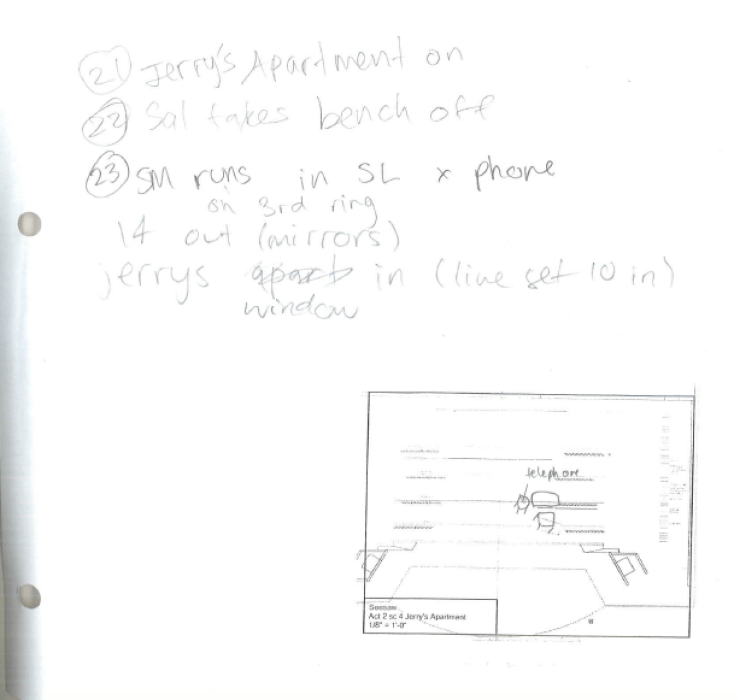 21 Jerry's Apartment on
22 Sal takes bench off
23 SM runs in SL x phone
on 3rd ring
14 out (mirrors)
jerrys apart in (line set 10 in)
window
telephone
Seesaw
Act 2 sc 4 Jerry's Apartment
1/8" = 1'-0"